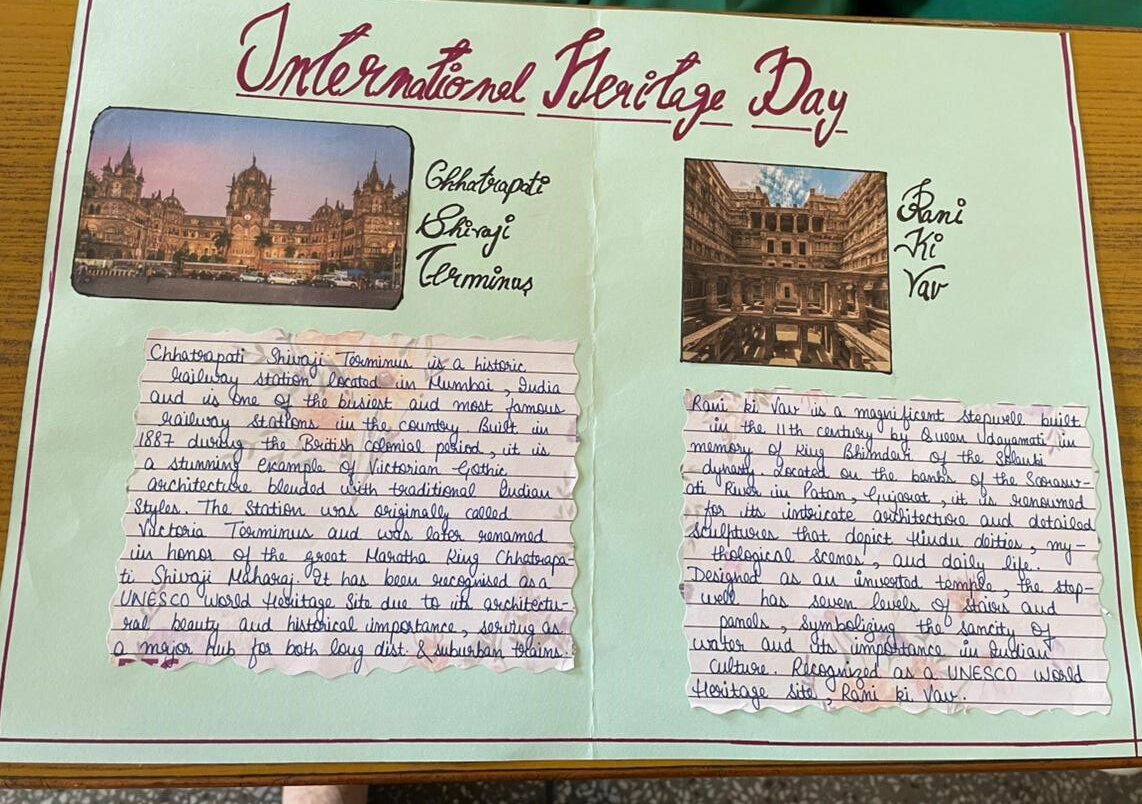 International Heritage Day
Chhatrapati
Shivaji
Terminus
Chhatrapati Shivaji Terminus is a historic
railway station located in Mumbai, India
and is one of the busiest and most famous
railway stations in the country. Built in
1887 during the British colonial period, it is
a stunning example of Victorian Gothic
architecture blended with traditional Indian
Styles. The Station was originally called
Victoria Terminus and was later renamed
in honor of the great Maratha King Chhatrapa-
ti Shivaji Maharaj. It has been recognised as a
UNESCO World Heritage Site due to its architectu-
ral beauty and historical importance, serving as
a major hub for both long dist. & suburban trains.
Rani
Ki
Vav
Rani ki Vav is a magnificent stepwell built
in the 11th century by Queen Udayamati in
memory of King Bhimdevi of the Solanki
dynasty. Located on the banks of the Saraswa-
ati River in Patan, Gujarat, it is renowned
for its intricate architecture and detailed
sculptures that depict Hindu deities, my-
thological scenes, and daily life.
Designed as an inverted temple, the step-
well has seven levels of stairs and
panels, symbolizing the sancity of
water and its importance in Indian
culture. Recognized as a UNESCO World
Heritage site, Rani ki Vav.